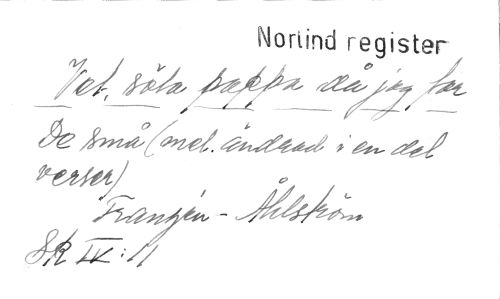 Norlind register
Vet, söta pappa då jag far
De små (mel. ändrad i en del
verser)
Franzén - Åhlström
SK IV: 11